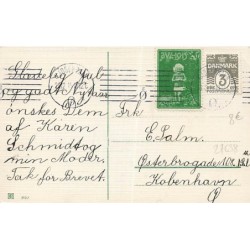 Glædelig Jul
og godt Nytaar
ønskes Dem
af Karen
Schmidt og
min Moder.
Tak for Brevet.
JULEN 1915
DANMARK
3
Frk
E. Palm.
Østerbrogade
København
Ø
8€